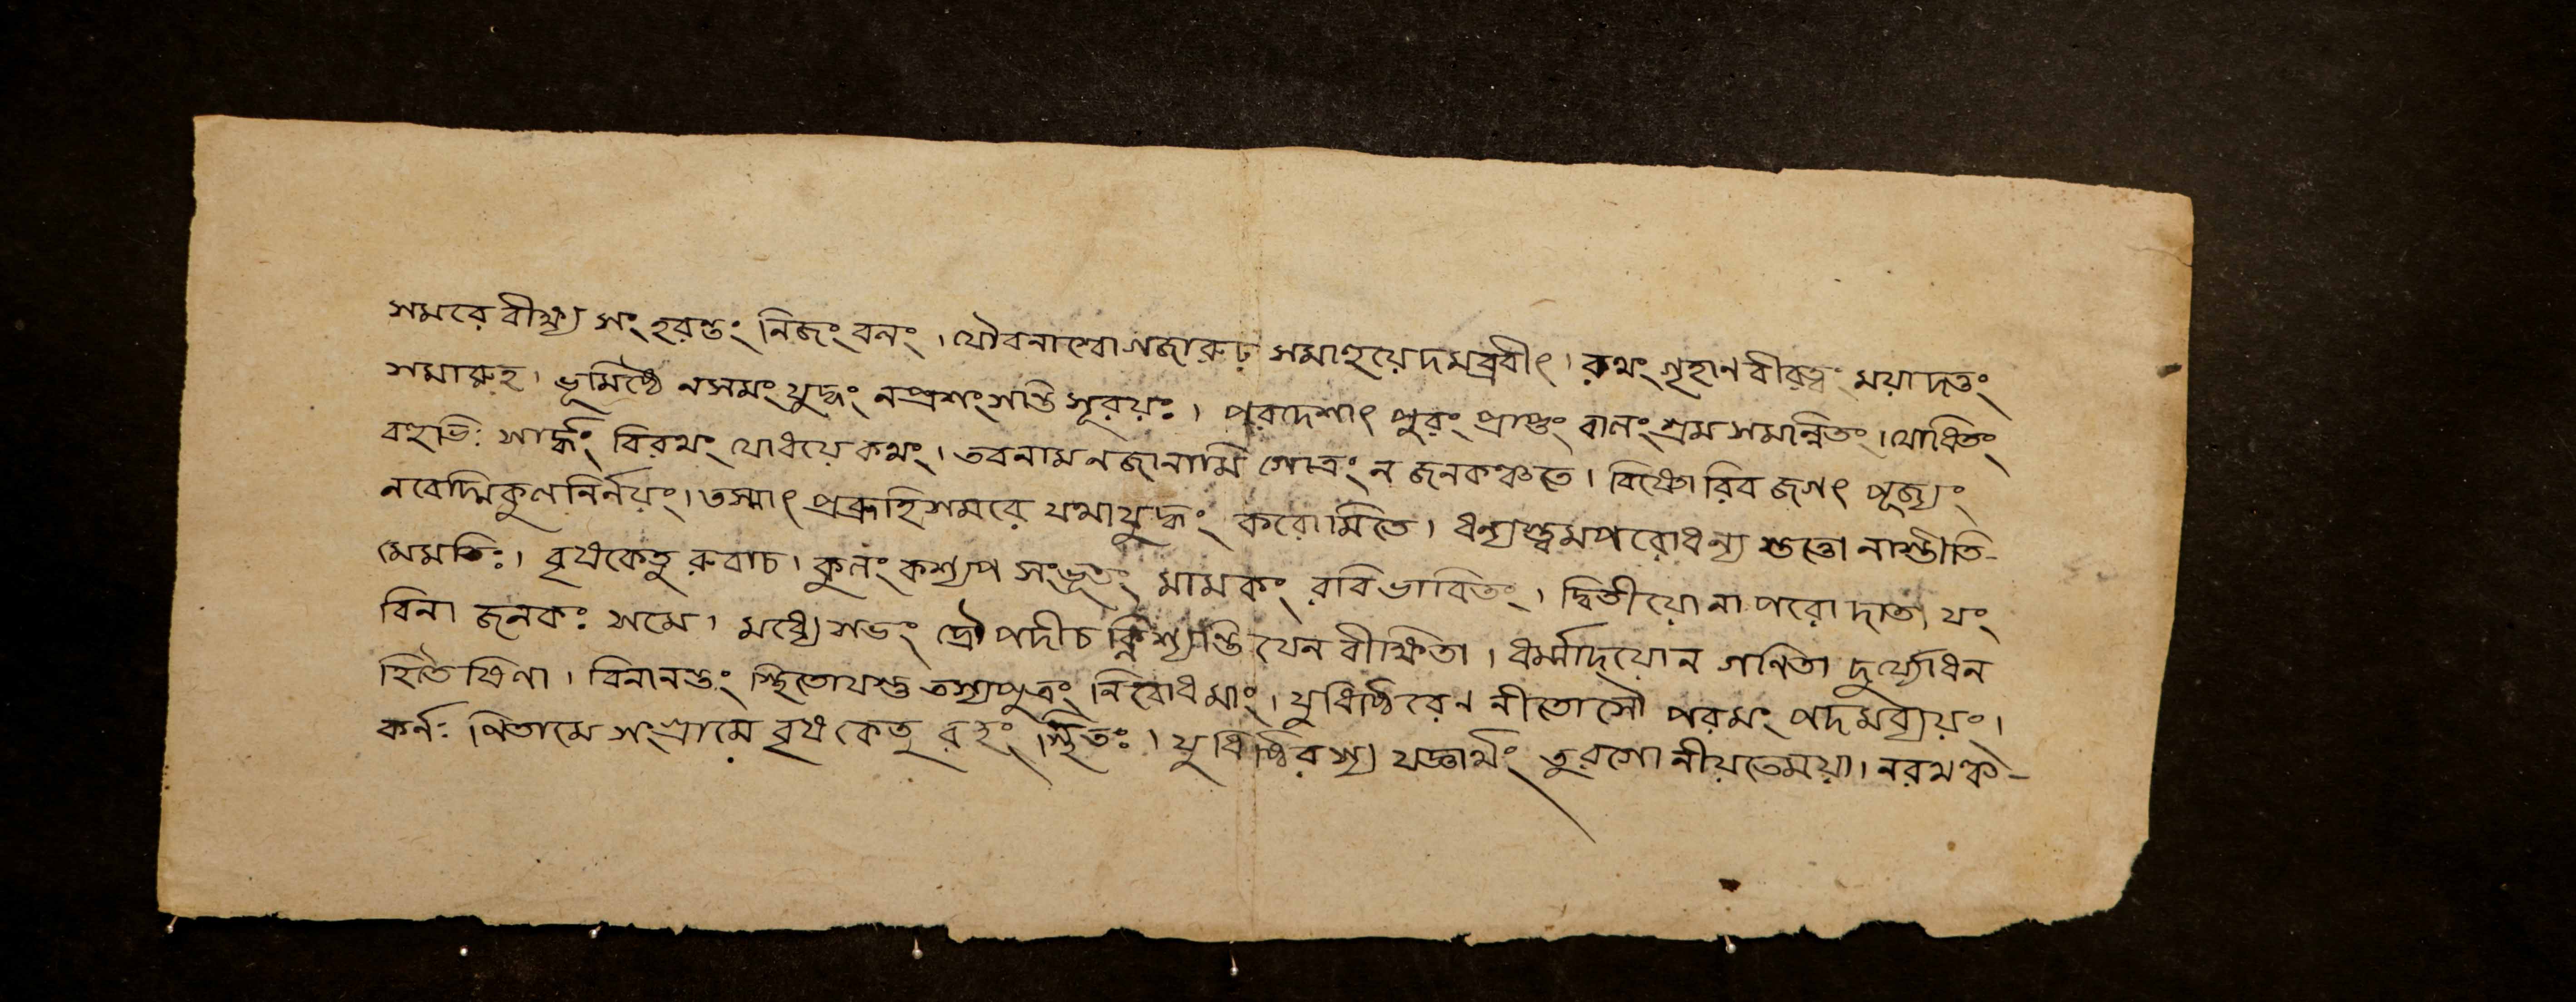 সমরে বীক্ষ্য সংহরন্তং নিজং বলং। যৌবনাশ্বো গজারূঢ় সমাহূয়েদমব্রবীৎ। রথং গৃহাণ বীরত্বং ময়া দত্তং
সমারুহ। ভূমিষ্ঠে ন সমং যুদ্ধং ন প্রশংসন্তি সূরয়ঃ। পুরদেশাৎ পুরং প্রাপ্তং বালং শ্রমসমন্নিতং। যোধিতং
বহুভিঃ সার্দ্ধং বিরথং যোধয়ে কথং। তব নাম ন জানামি গোত্রং ন জনকঞ্চতে। বিষ্ণোরিব জগৎ পূজ্যং
ন বেদ্মি কুলনির্নয়ং। তস্মাৎ প্রব্রূহি সমরে যথা যুদ্ধং করোমি তে। ধন্যস্ত্বমপরোধন্য স্তত্তো নাস্তীতি-
মে মতিঃ। বৃষকেতুরুবাচ। কুলং কশ্যপ সংভূতং মামকং রবিভাবিতং। দ্বিতীয়োনাপরো দাতা যং
বিনা জনকঃ স মে। মধ্যে সভং দ্রৌপদী চ ক্লিশ্যন্তি যেন বীক্ষিতা। ধর্ম্মাদয়োন গণিতা দুর্য্যোধন
হিতৈষিণা। বিনানন্তং স্থিতো যস্তু তস্য পুত্রং নিবোধ মাং। যুধিষ্ঠিরেণ নীতোসৌ পরমং পদমব্যয়ং।
কর্নঃ পিতা মে সংগ্রামে বৃষকেতু রহং স্থিতঃ। যুধিষ্ঠিরস্য যজ্ঞার্থং তুরগো নীয়তে ময়া। ন রথঞ্চ-